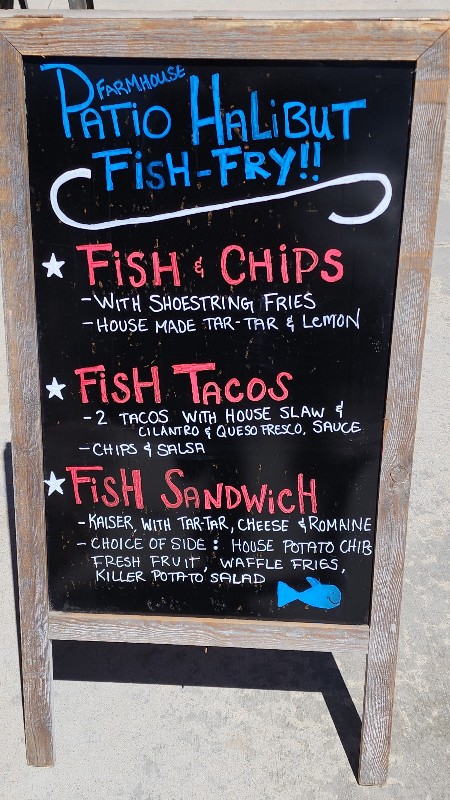 FARMHOUSE
PATIO HALIBUT
FISH-FRY!!
FISH & CHIPS
- WITH SHOESTRING FRIES
- HOUSE MADE TAR-TAR & LEMON
FISH TACOS
- 2 TACOS WITH HOUSE SLAW &
CILANTRO & QUESO FRESCO, SAUCE
- CHIPS & SALSA
FISH SANDWICH
- KAISER, WITH TAR-TAR, CHEESE & ROMAINE
- CHOICE OF SIDE: HOUSE POTATO CHIB
FRESH FRUIT, WAFFLE FRIES,
KILLER POTATO SALAD